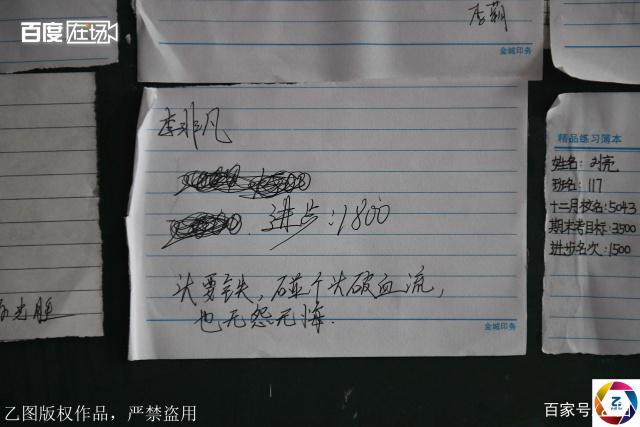 百度在场
李萌
金城印务
李非凡
进步：1800
头要铁，碰个头破血流，
也无怨无悔.
金城印务
精品练习簿本
姓名：刘亮
班名：117
十二月校名：5043
期末考目标：3500
进步名次：1500
乙图版权作品，严禁盗用
百家号
乙